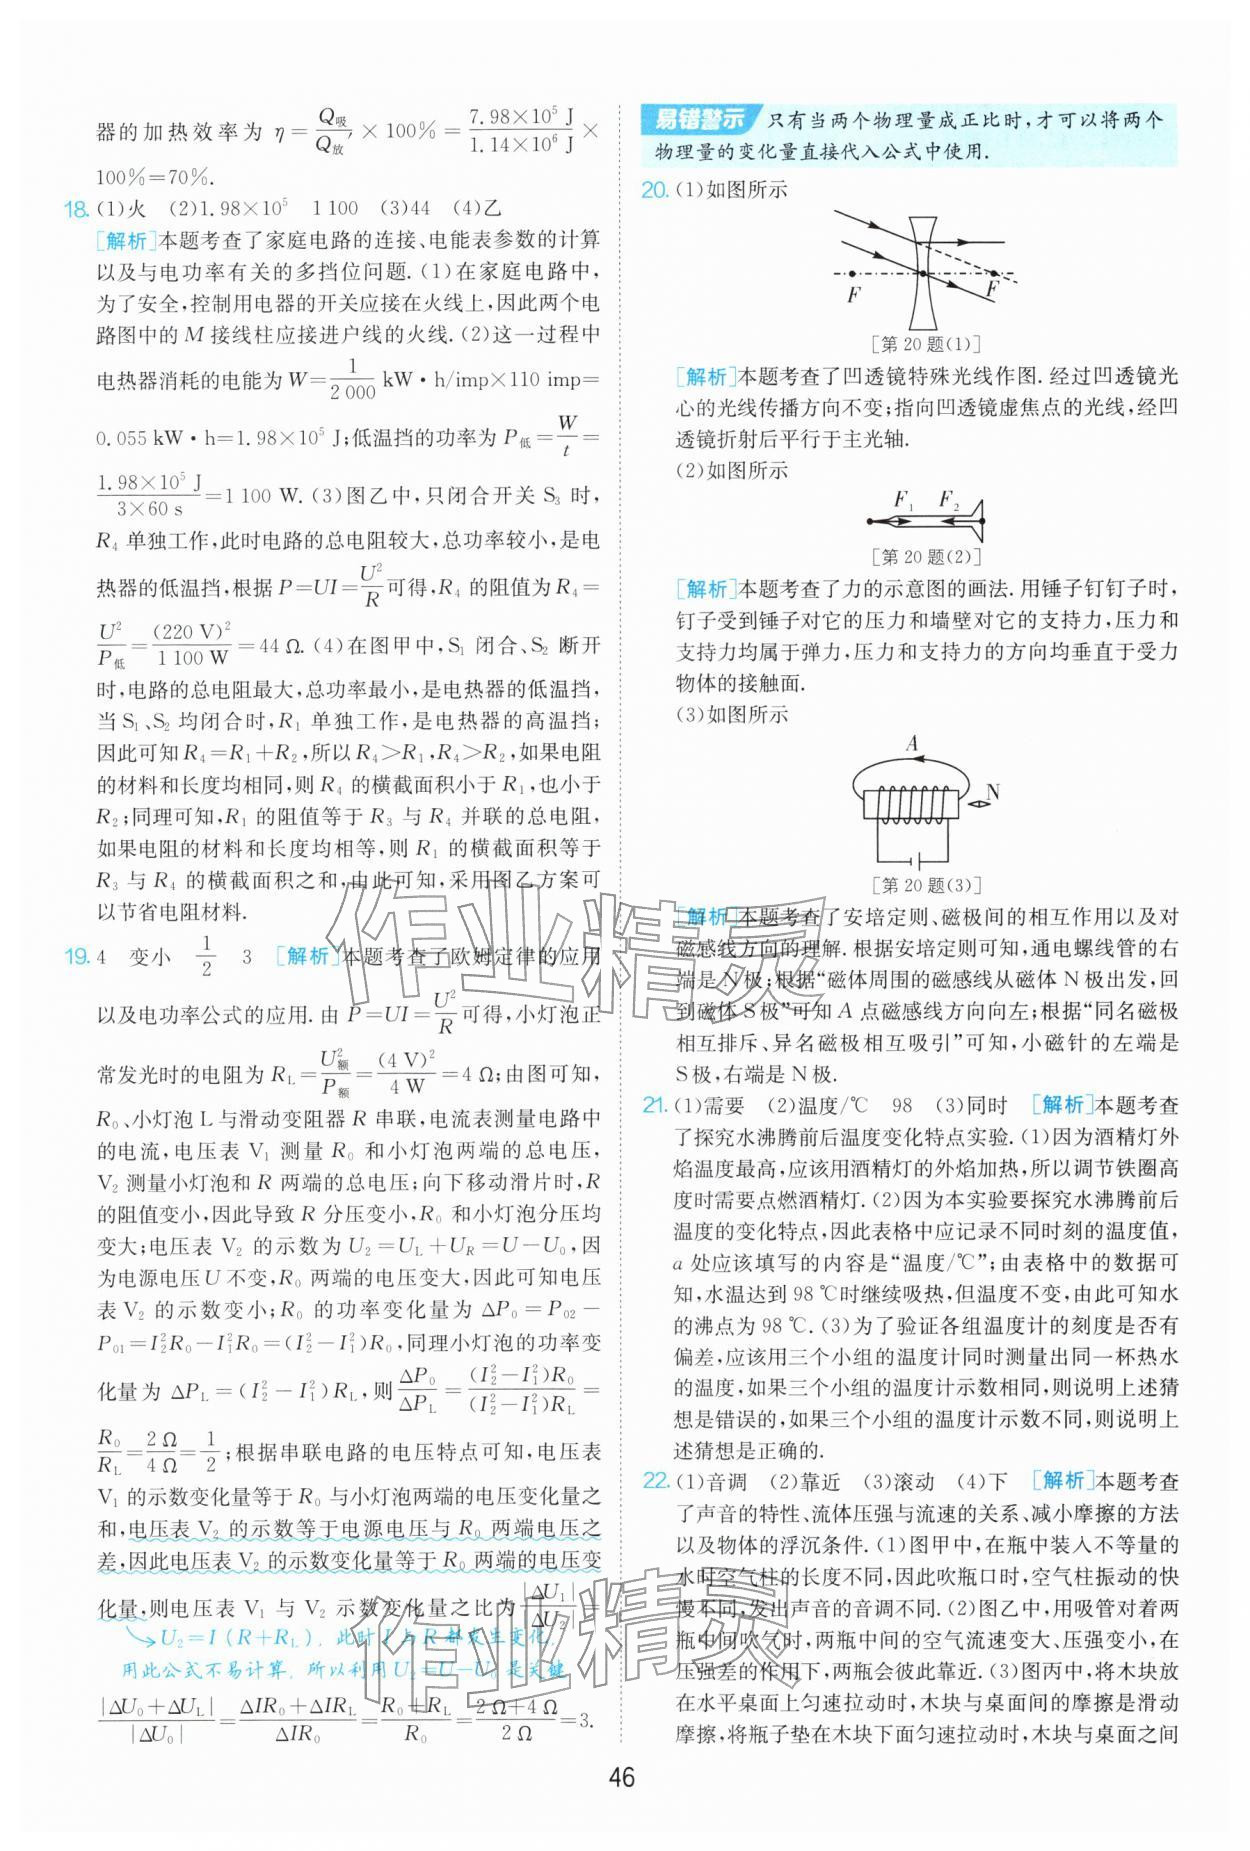 器的加热效率为 η=Q吸/Q放×100%=7.98×10⁵ J/1.14×10⁶ J×
100%=70%.
18. (1)火 (2)1.98×10⁵ 1 100 (3)44 (4)乙
[解析]本题考查了家庭电路的连接、电能表参数的计算
以及与电功率有关的多挡位问题.(1)在家庭电路中，
为了安全,控制用电器的开关应接在火线上,因此两个电
路图中的 M 接线柱应接进户线的火线.(2)这一过程中
电热器消耗的电能为 W=1/2 000 kW·h/imp×110 imp=
0.055 kW·h=1.98×10⁵ J;低温挡的功率为 P低=W/t=
1.98×10⁵ J/3×60 s=1 100 W.(3)图乙中,只闭合开关 S₃ 时,
R₄ 单独工作,此时电路的总电阻较大,总功率较小,是电
热器的低温挡,根据 P=UI=U²/R可得,R₄ 的阻值为 R₄=
U²/P低=(220 V)²/1 100 W=44 Ω.(4)在图甲中,S₁ 闭合、S₂ 断开
时,电路的总电阻最大,总功率最小,是电热器的低温挡,
当 S₁、S₂ 均闭合时,R₁ 单独工作,是电热器的高温挡;
因此可知 R₄=R₁+R₂,所以 R₄>R₁,R₄>R₂,如果电阻
的材料和长度均相同,则 R₄ 的横截面积小于 R₁,也小于
R₂;同理可知,R₁ 的阻值等于 R₃ 与 R₄ 并联的总电阻,
如果电阻的材料和长度均相等,则 R₁ 的横截面积等于
R₃ 与 R₄ 的横截面积之和,由此可知,采用图乙方案可
以节省电阻材料.
19. 4 变小 1/2 3 [解析]本题考查了欧姆定律的应用
以及电功率公式的应用.由 P=UI=U²/R可得,小灯泡正
常发光时的电阻为 R_L=U²额/P额=(4 V)²/4 W=4 Ω;由图可知,
R₀、小灯泡 L 与滑动变阻器 R 串联,电流表测量电路中
的电流,电压表 V₁ 测量 R₀ 和小灯泡两端的总电压,
V₂ 测量小灯泡和 R 两端的总电压;向下移动滑片时,R
的阻值变小,因此导致 R 分压变小,R₀ 和小灯泡分压均
变大;电压表 V₂ 的示数为 U₂=U_L+U_R=U-U₀,因
为电源电压 U 不变,R₀ 两端的电压变大,因此可知电压
表 V₂ 的示数变小;R₀ 的功率变化量为 ΔP₀=P₀₂-
P₀₁=I₂²R₀-I₁²R₀=(I₂²-I₁²)R₀,同理小灯泡的功率变
化量为 ΔP_L=(I₂²-I₁²)R_L,则ΔP₀/ΔP_L=(I₂²-I₁²)R₀/(I₂²-I₁²)R_L=
R₀/R_L=2 Ω/4 Ω=1/2;根据串联电路的电压特点可知,电压表
V₁ 的示数变化量等于 R₀ 与小灯泡两端的电压变化量之
和,电压表 V₂ 的示数等于电源电压与 R₀ 两端电压之
差,因此电压表 V₂ 的示数变化量等于 R₀ 两端的电压变
化量,则电压表 V₁ 与 V₂ 示数变化量之比为|ΔU₁|/|ΔU₂|=
U₂=I(R+R_L),此时 I 与 R 都发生变化,
用此公式不易计算,所以利用 U₂=U-U₀ 是关键
|ΔU₀+ΔU_L|/|ΔU₀|=ΔIR₀+ΔIR_L/ΔIR₀=R₀+R_L/R₀=2 Ω+4 Ω/2 Ω=3.
易错警示 只有当两个物理量成正比时,才可以将两个
物理量的变化量直接代入公式中使用.
20. (1)如图所示
F F
[第 20 题(1)]
[解析]本题考查了凹透镜特殊光线作图.经过凹透镜光
心的光线传播方向不变;指向凹透镜虚焦点的光线,经凹
透镜折射后平行于主光轴.
(2)如图所示
F₁ F₂
[第 20 题(2)]
[解析]本题考查了力的示意图的画法.用锤子钉钉子时,
钉子受到锤子对它的压力和墙壁对它的支持力,压力和
支持力均属于弹力,压力和支持力的方向均垂直于受力
物体的接触面.
(3)如图所示
A
N
[第 20 题(3)]
[解析]本题考查了安培定则、磁极间的相互作用以及对
磁感线方向的理解.根据安培定则可知,通电螺线管的右
端是 N 极;根据“磁体周围的磁感线从磁体 N 极出发,回
到磁体 S 极”可知 A 点磁感线方向向左;根据“同名磁极
相互排斥、异名磁极相互吸引”可知,小磁针的左端是
S 极,右端是 N 极.
21. (1)需要 (2)温度/℃ 98 (3)同时 [解析]本题考查
了探究水沸腾前后温度变化特点实验.(1)因为酒精灯外
焰温度最高,应该用酒精灯的外焰加热,所以调节铁圈高
度时需要点燃酒精灯.(2)因为本实验要探究水沸腾前后
温度的变化特点,因此表格中应记录不同时刻的温度值,
a 处应该填写的内容是“温度/℃”;由表格中的数据可
知,水温达到 98 ℃时继续吸热,但温度不变,由此可知水
的沸点为 98 ℃.(3)为了验证各组温度计的刻度是否有
偏差,应该用三个小组的温度计同时测量出同一杯热水
的温度,如果三个小组的温度计示数相同,则说明上述猜
想是错误的,如果三个小组的温度计示数不同,则说明上
述猜想是正确的.
22. (1)音调 (2)靠近 (3)滚动 (4)下 [解析]本题考查
了声音的特性、流体压强与流速的关系、减小摩擦的方法
以及物体的浮沉条件.(1)图甲中,在瓶中装入不等量的
水时空气柱的长度不同,因此吹瓶口时,空气柱振动的快
慢不同,发出声音的音调不同.(2)图乙中,用吸管对着两
瓶中间吹气时,两瓶中间的空气流速变大、压强变小,在
压强差的作用下,两瓶会彼此靠近.(3)图丙中,将木块放
在水平桌面上匀速拉动时,木块与桌面间的摩擦是滑动
摩擦,将瓶子垫在木块下面匀速拉动时,木块与桌面之间
作业精灵
作业精灵
46